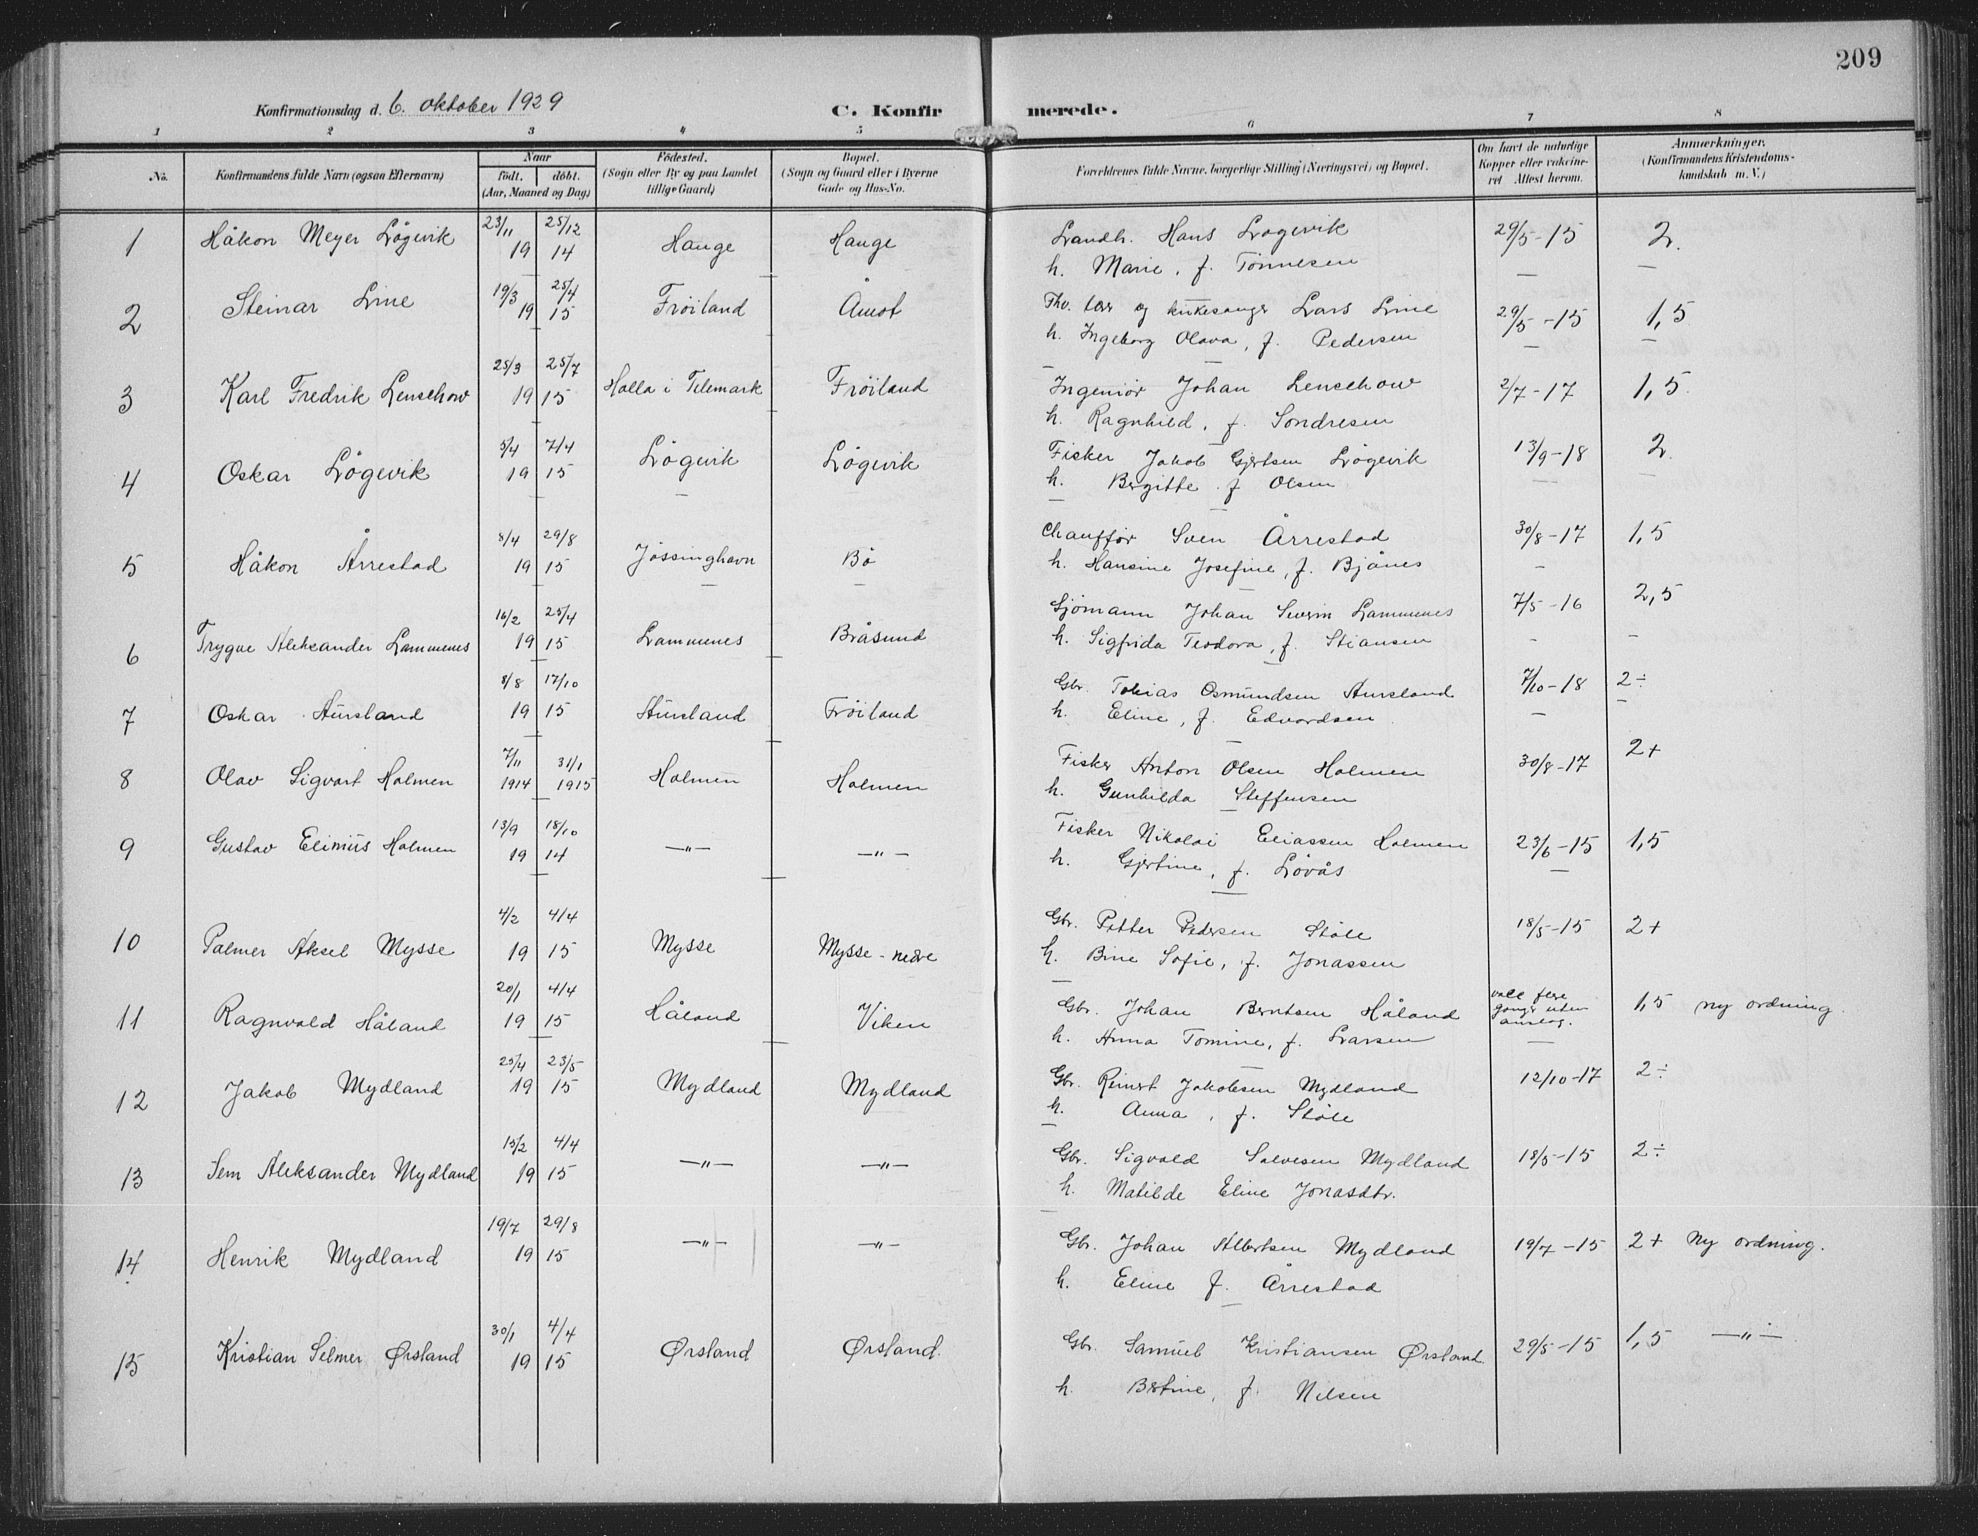 209
Konfirmationsdag d. 6. oktober 1929 C. Konfir merede.
1 2 3 4 5 6 7 8
No. Konfirmandens fulde Navn (ogsaa Efternavn) Naar født. døbt. (Aar, Maaned og Dag) Fødested. (Sogn eller By og paa Landet tillige Gaard) Bopæl. (Sogn og Gaard eller i Byerne Gade og Hus-No. Forældrenes fulde Navne, borgerlige Stilling (Næringsvei) og Bopæl. Om havt de naturlige Kopper eller vakcineret Attest herom. Anmærkninger. (Konfirmandens Kristendomskundskab m. V.)
1 Håkon Meyer Løgevik 23/11 19 25/12 14 Hauge Hauge Landh. Hans Løgevik 29/5-15 2.
h. Marie, f. Tønnesen
2 Steinar Line 19/3 19 25/4 15 Frøiland Åmot Fhv. lær og kirkesanger Lars Line 29/5-15 1,5
h. Ingeborg Olava, f. Pedersen
3 Karl Fredrik Lenschow 25/3 19 25/7 15 Holla i Telemark Frøiland Ingeniør Johan Lenschow 2/7-17 1,5.
h. Ragnhild, f. Sondresen
4 Oskar Løgevik 5/4 19 7/4 15 Løgevik Løgevik Fisker Jakob Gjertsen Løgevik 13/9-18 2
h. Bergitte f Olsen
5 Håkon Årrestad 8/4 19 29/8 15 Jøssinghavn Bø Chauffør Sven Årrestad 30/8-17 1,5
h. Hansine Josefine, f. Bjånes
6 Trygve Aleksander Lammenes 16/2 19 25/4 15 Lammenes Bråsund Sjømann Johan Severin Lammenes 7/5-16 2,5
h. Sigfrida Teodora, f. Stiansen
7 Oskar Aursland 8/8 19 17/10 15 Aursland Frøiland Gbr. Tobias Osmundsen Aursland 7/10-18 2÷
h. Eline, f. Edvardsen
8 Olav Sigvart Holmen 7/11 1914 31/1 1915 Holmen Holmen Fisker Anton Olsen Holmen 30/8-17 2+
h. Gunhilda Steffensen
9 Gustav Elimius Holmen 13/9 19 18/10 14 —"— —"— Fisker Nikolai Eliassen Holmen 23/6-15 1,5
h. Gjertine, f. Løvås
10 Palmer Aksel Mysse 4/2 19 4/4 15 Mysse Mysse - nedre Gbr. Petter Pedersen Støle 18/5-15 2+
h. Bine Sofie, f. Jonassen
11 Ragnvald Håland 20/1 19 4/4 15 Håland Viken Gbr. Johan Berntsen Håland vacc flere ganger uten anslag. 1,5 ny ordning.
h. Anna Tomine, f. Larsen
12 Jakob Mydland 25/4 19 23/5 15 Mydland Mydland Gbr. Reinert Jakobsen Mydland 12/10-17 2÷
h. Anna, f. Støle
13 Sem Aleksander Mydland 15/2 19 4/4 15 —"— —"— Gbr. Sigvald Salvesen Mydland 18/5-15 2÷
h. Matilde Eline Jonasdtr.
14 Henrik Mydland 19/7 19 29/8 15 —"— —"— Gbr. Johan Albertsen Mydland 19/7-15 2+ Ny ordning.
h. Eline f. Årrestad
15 Kristian Selmer Ørsland 30/1 19 4/4 15 Ørsland Ørsland. Gbr. Samuel Kristiansen Ørsland. 29/5-15 1,5 —"—
h. Bertine, f. Nilsen